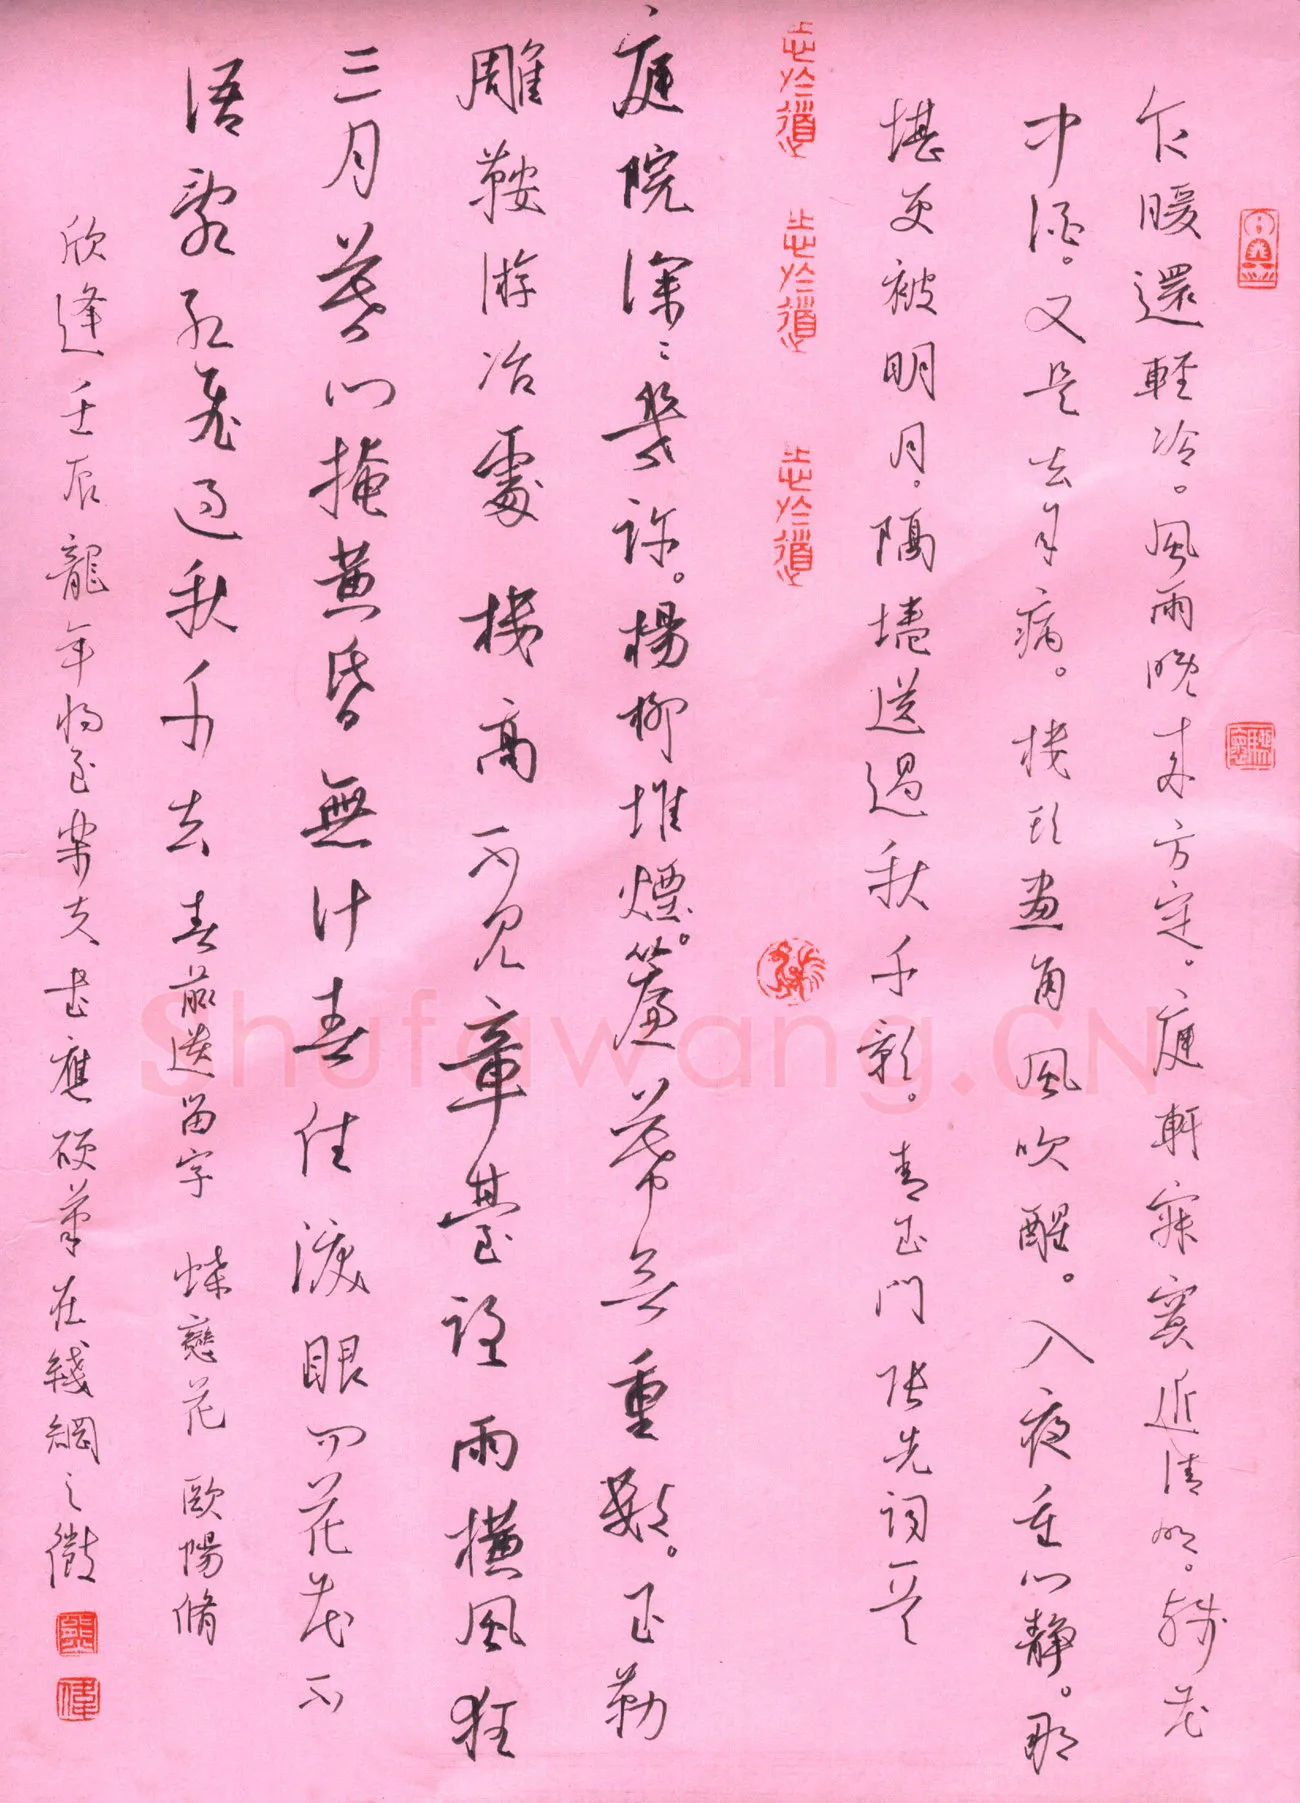 乍暖還輕冷。風雨晚來方定。庭軒寂寞近清明。殘花
中酒。又是去年病。樓頭畫角風吹醒。入夜重門靜。那
堪更被明月。隔墻送過秋千影。青玉門 张先詞一首
志於道
志於道
志於道
庭院深〻幾許。楊柳堆煙。簾幕無重數。玉勒
雕鞍游冶處 樓高不見章臺路 雨橫風狂
三月暮門掩黄昏無計春住淚眼问花花不
語亂紅飛過秋千去 春前遺留字 蝶戀花 歐陽脩
欣逢壬辰龍年將至樂天書應硬筆在綫網之徵
Shufawang.CN